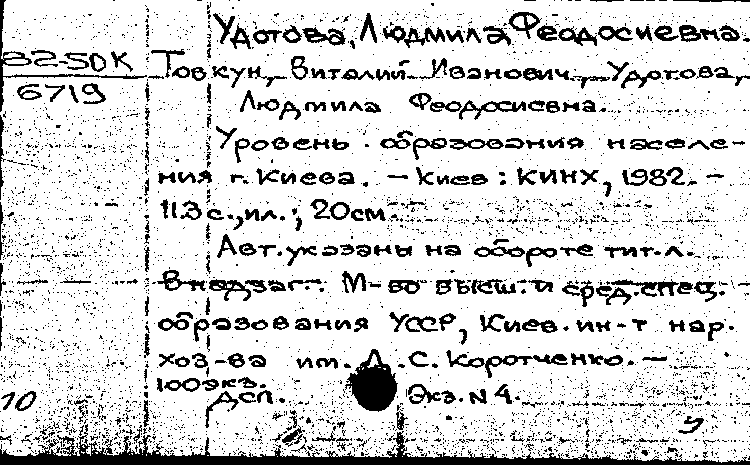 Удотова, Людмила Феодосиевна.
82-50К Товкун, Виталий Иванович, Удотова,
6719 Людмила Феодосиевна.
Уровень образования населе-
ния г. Киева. – Киев : КИНХ, 1982. –
113 с., ил.; 20см.
Авт. указаны на обороте тит. л.
В надзаг.: М-во высш. и сред. спец.
образования УССР, Киев. ин-т нар.
хоз-ва им. Д. С. Коротченко. –
100экз.
10 ДСП. Экз. N 4.